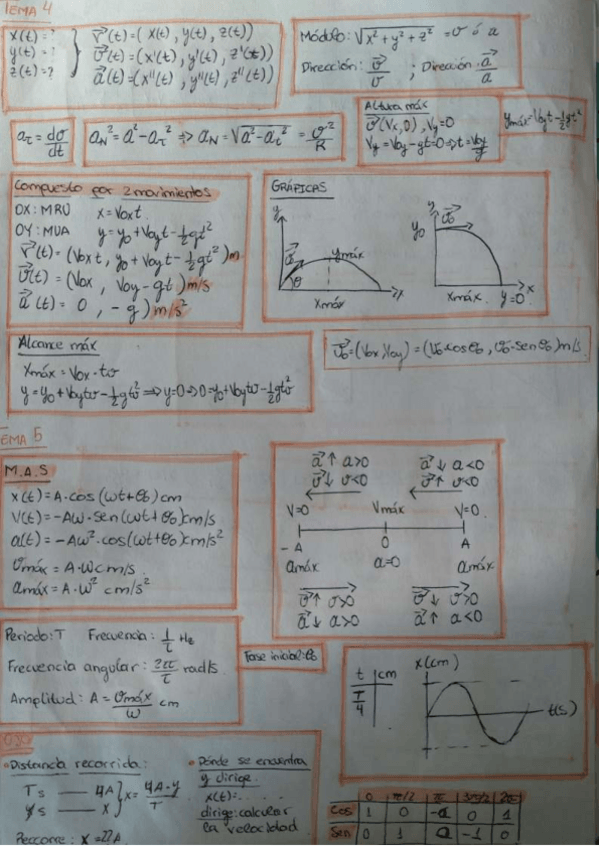 TEMA 4
x(t)=?
y(t)=?
z(t)=?
r⃗(t)=(x(t), y(t), z(t))
v⃗(t)=(x'(t), y'(t), z'(t))
a⃗(t)=(x''(t), y''(t), z''(t))
Módulo: √x²+y²+z² = v ó a
Dirección: v⃗/v ; Dirección: a⃗/a
aτ = dv/dt
aN² = a² - aτ² => aN = √a²-aτ² = v²/R
Altura máx
v⃗(Vx,0), Vy=0
Vy=Voy-gt=0 => t=Voy/g
ymáx=Voyt-½gt²
Compuesto por 2 movimientos
OX: MRU x=Voxt
OY: MUA y=yo+Voyt-½gt²
r⃗(t)=(Voxt, yo+Voyt-½gt²)m
v⃗(t)=(Vox, Voy-gt)m/s
a⃗(t)= 0, -g)m/s²
GRÁFICAS
y
θ
ymáx
xmáx
x
y
yo
v⃗o
xmáx
y=0
x
Alcance máx
xmáx=Vox·tv
y=yo+Voytv-½gtv² => y=0 => 0=yo+Voytv-½gtv²
v⃗o=(Vox,Voy)=(vo·cosθo, vo·senθo)m/s
TEMA 5
M.A.S
x(t)=A·cos(ωt+θo)cm
V(t)=-Aω·sen(ωt+θo)cm/s
a(t)=-Aω²·cos(ωt+θo)cm/s²
vmáx=A·ω cm/s
amáx=A·ω² cm/s²
a⃗↑ a>0 a⃗↓ a<0
v⃗↓ v<0 v⃗↑ v<0
V=0 Vmáx V=0
-A 0 A
amáx a=0 amáx
v⃗↑ v>0 v⃗↓ v>0
a⃗↓ a>0 a⃗↑ a<0
Periodo: T Frecuencia: 1/τ Hz
Frecuencia angular: 2π/τ rad/s
Amplitud: A = vmáx/ω cm
Fase inicial: θo
t cm
T/4
x(cm)
t(s)
OJO
Distancia recorrida:
Ts —— 4A
ys —— x
x = 4A·y/T
Recorre: x=22A
Dónde se encuentra
y dirige.
x(t)=......
dirige: calcular
la velocidad
0 π/2 π 3π/2 2π
Cos 1 0 -1 0 1
Sen 0 1 0 -1 0